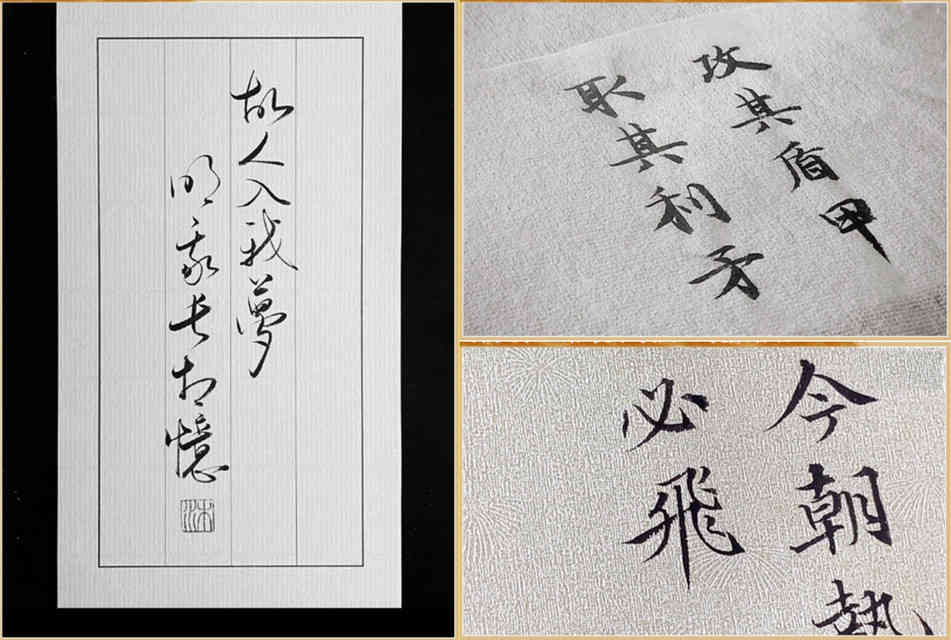 故人入我夢
明我长相憶
攻其盾甲
取其利矛
今朝
必飛